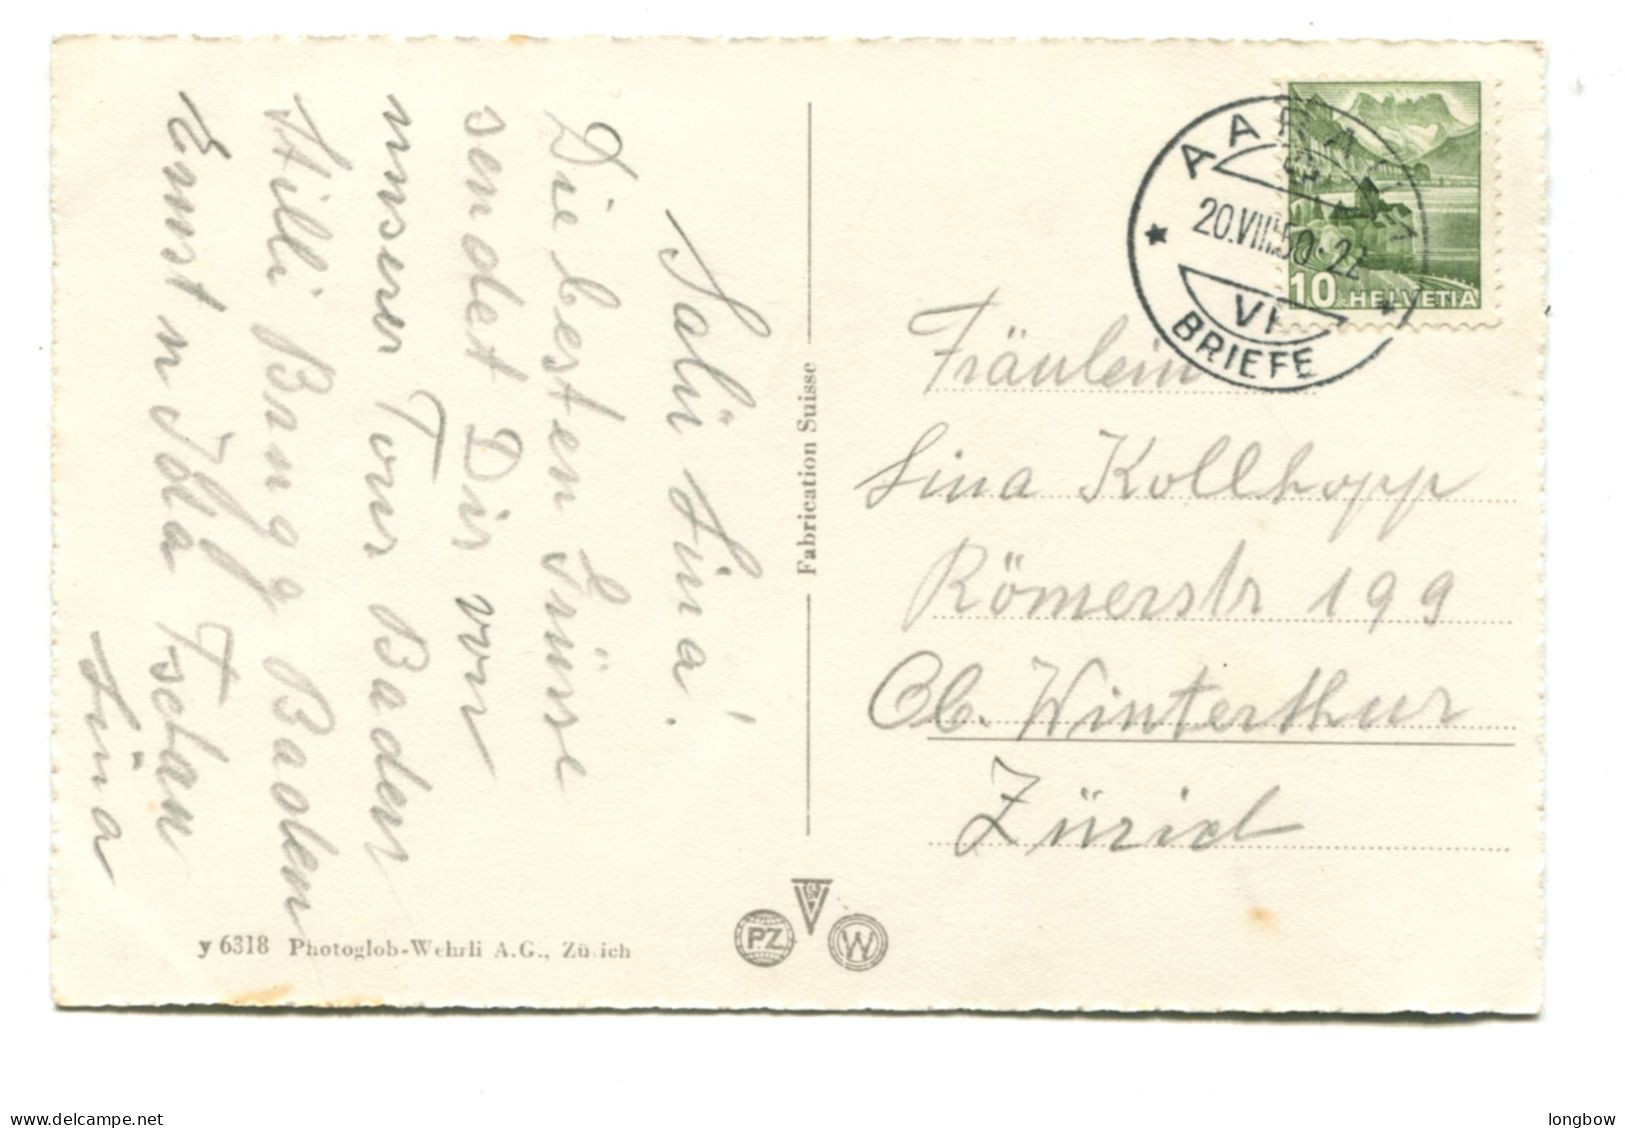 Salü Lina!
Die besten Grüsse
sendet Dir von
unserer Tour Baden
Hilli Bangg Baden
Ernst n Ida Tschan
Lina
Fabrication Suisse
AARAU 1
20.VIII.50-22
BRIEFE
10 HELVETIA
Fräulein
Lina Kollhopp
Römerstr 199
Ob. Winterthur
Zürich
y 6318 Photoglob-Wehrli A.G., Zürich
PZ
W
delcampe.net
longbow